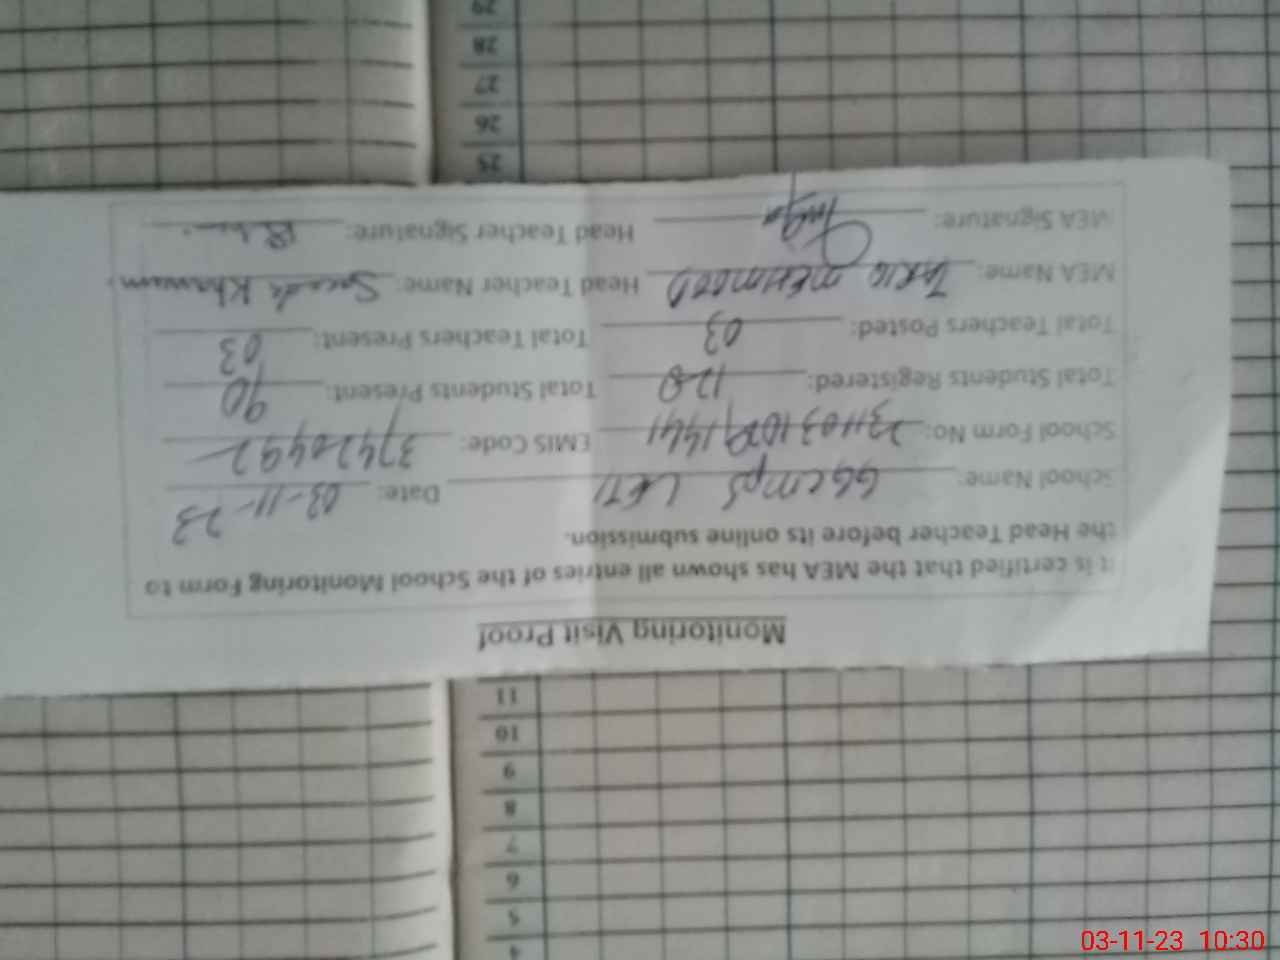 Monitoring Visit Proof
It is certified that the MEA has shown all entries of the School Monitoring Form to
the Head Teacher before its online submission.
School Name: GGCMPS Date: 03-11-23
School Form No: EMIS Code: 37420492
Total Students Registered: 120 Total Students Present: 90
Total Teachers Posted: 03 Total Teachers Present: 03
MEA Name: TARIQ MEHMOOD Head Teacher Name: Khanum
MEA Signature: Head Teacher Signature:
4
5
6
7
8
9
10
11
25
26
27
28
29
03-11-23 10:30